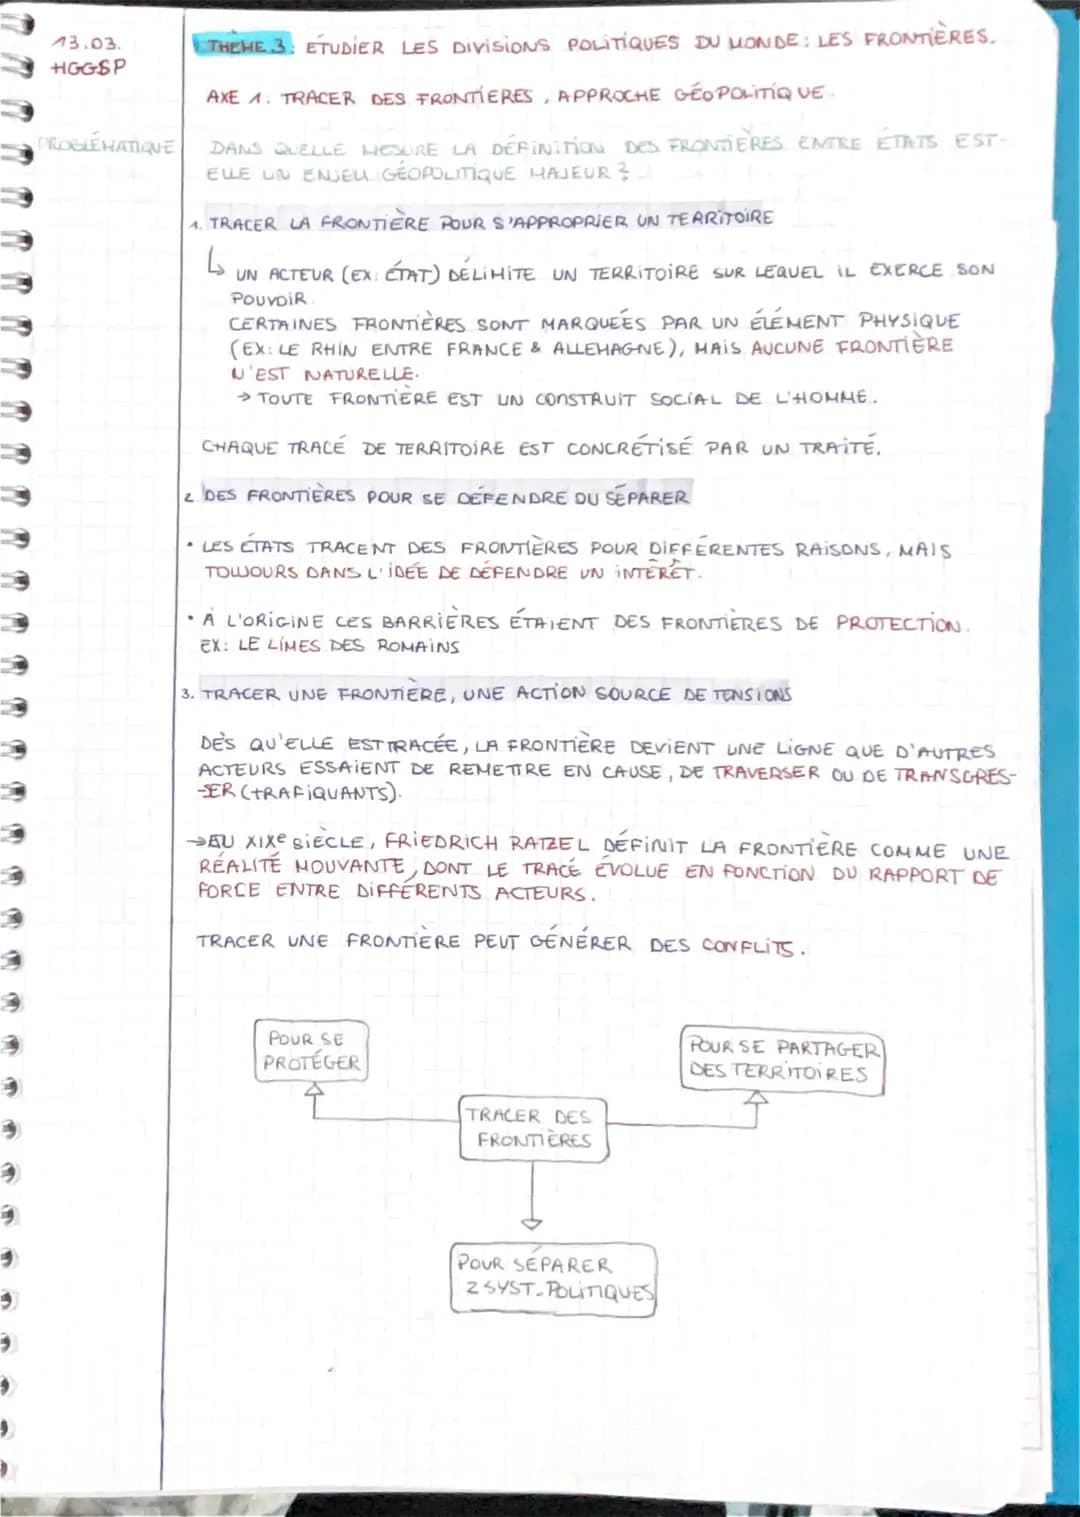 13.03.
HGGSP
THÈME 3: ÉTUDIER LES DIVISIONS POLITIQUES DU MONDE: LES FRONTIÈRES.
AXE 1: TRACER DES FRONTIERES, APPROCHE GÉOPOLITIQUE.
PROBLÉMATIQUE
DANS QUELLE MESURE LA DÉFINITION DES FRONTIÈRES ENTRE ÉTATS EST-
ELLE UN ENJEU GÉOPOLITIQUE MAJEUR?
1. TRACER LA FRONTIÈRE POUR S'APPROPRIER UN TERRITOIRE
↳ UN ACTEUR (EX: ÉTAT) DÉLIMITE UN TERRITOIRE SUR LEQUEL IL EXERCE SON
POUVOIR.
CERTAINES FRONTIÈRES SONT MARQUÉES PAR UN ÉLÉMENT PHYSIQUE
(EX: LE RHIN ENTRE FRANCE & ALLEMAGNE), MAIS AUCUNE FRONTIÈRE
N'EST NATURELLE.
→ TOUTE FRONTIÈRE EST UN CONSTRUIT SOCIAL DE L'HOMME.
CHAQUE TRACÉ DE TERRITOIRE EST CONCRÉTISÉ PAR UN TRAITÉ.
2 DES FRONTIÈRES POUR SE DÉFENDRE OU SÉPARER
• LES ÉTATS TRACENT DES FRONTIÈRES POUR DIFFÉRENTES RAISONS, MAIS
TOUJOURS DANS L'IDÉE DE DÉFENDRE UN INTÉRÊT.
• À L'ORIGINE CES BARRIÈRES ÉTAIENT DES FRONTIÈRES DE PROTECTION.
EX: LE LIMES DES ROMAINS
3. TRACER UNE FRONTIÈRE, UNE ACTION SOURCE DE TENSIONS
DÈS QU'ELLE EST TRACÉE, LA FRONTIÈRE DEVIENT UNE LIGNE QUE D'AUTRES
ACTEURS ESSAIENT DE REMETTRE EN CAUSE, DE TRAVERSER OU DE TRANSGRES-
-SER (TRAFIQUANTS).
→ AU XIXe SIÈCLE, FRIEDRICH RATZEL DÉFINIT LA FRONTIÈRE COMME UNE
RÉALITÉ MOUVANTE, DONT LE TRACÉ ÉVOLUE EN FONCTION DU RAPPORT DE
FORCE ENTRE DIFFÉRENTS ACTEURS.
TRACER UNE FRONTIÈRE PEUT GÉNÉRER DES CONFLITS.
POUR SE
PROTÉGER
POUR SE PARTAGER
DES TERRITOIRES
TRACER DES
FRONTIÈRES
POUR SÉPARER
2 SYST. POLITIQUES